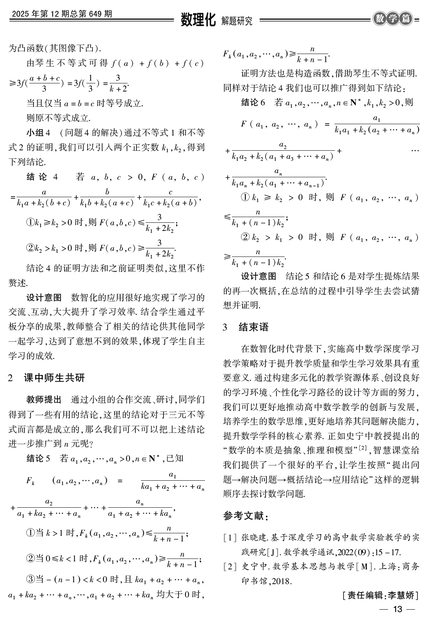 2025 年第 12 期总第 649 期
数理化 解题研究
数学篇
为凸函数(其图像下凸).
由琴生不等式可得 f(a) + f(b) + f(c)
≥3f((a+b+c)/3) = 3f(1/3) = 3/(k+2).
当且仅当 a = b = c 时等号成立.
则原不等式成立.
小组 4 (问题 4 的解决)通过不等式 1 和不等
式 2 的证明,我们可以引入两个正实数 k₁,k₂,得到
下列结论.
结论 4 若 a, b, c > 0, F(a, b, c)
= a/(k₁a+k₂(b+c)) + b/(k₁b+k₂(a+c)) + c/(k₁c+k₂(a+b)),
①k₁≥k₂>0 时,则 F(a,b,c)≤3/(k₁+2k₂);
②k₂>k₁>0 时,则 F(a,b,c)≥3/(k₁+2k₂).
结论 4 的证明方法和之前证明类似,这里不作
赘述.
设计意图 数智化的应用很好地实现了学习的
交流、互动,大大提升了学习效率. 结合学生通过平
板分享的成果,教师整合了相关的结论供其他同学
一起学习,达到了意想不到的效果,体现了学生自主
学习的成效.
2 课中师生共研
教师提出 通过小组的合作交流、研讨,同学们
得到了一些有用的结论,这里的结论对于三元不等
式而言都是成立的,那么我们可不可以把上述结论
进一步推广到 n 元呢?
结论 5 若 a₁,a₂,…,aₙ>0,n∈N*,已知
Fₖ (a₁,a₂,…,aₙ) = a₁/(ka₁+a₂+…+aₙ)
+ a₂/(a₁+ka₂+…+aₙ) + … + aₙ/(a₁+a₂+…+kaₙ),
①当 k>1 时,Fₖ(a₁,a₂,…,aₙ)≤n/(k+n-1);
②当 0≤k<1 时,Fₖ(a₁,a₂,…,aₙ)≥n/(k+n-1);
③当 -(n-1)<k<0 时,且 ka₁+a₂+…+aₙ,
a₁+ka₂+…+aₙ,…,a₁+a₂+…+kaₙ 均大于 0 时,
Fₖ(a₁,a₂,…,aₙ)≥n/(k+n-1).
证明方法也是构造函数,借助琴生不等式证明.
同样对于结论 4 我们也可以推广得到如下结论:
结论 6 若 a₁,a₂,…,aₙ,n∈N*,k₁,k₂>0,则
F(a₁, a₂, …, aₙ) = a₁/(k₁a₁+k₂(a₂+…+aₙ))
+ a₂/(k₁a₂+k₂(a₁+a₃+…+aₙ)) + …
+ aₙ/(k₁aₙ+k₂(a₁+…+aₙ₋₁)).
① k₁ ≥ k₂ > 0 时, 则 F(a₁, a₂, …, aₙ)
≤ n/(k₁+(n-1)k₂);
② k₂ > k₁ > 0 时, 则 F(a₁, a₂, …, aₙ)
≥ n/(k₁+(n-1)k₂).
设计意图 结论 5 和结论 6 是对学生提炼结果
的再一次概括,在总结的过程中引导学生去尝试猜
想并证明.
3 结束语
在数智化时代背景下,实施高中数学深度学习
教学策略对于提升教学质量和学生学习效果具有重
要意义. 通过构建多元化的教学资源体系、创设良好
的学习环境、个性化学习路径的设计等方面的努力,
我们可以更好地推动高中数学教学的创新与发展,
培养学生的数学思维,更好地培养其问题解决能力,
提升数学学科的核心素养. 正如史宁中教授提出的
“数学的本质是抽象、推理和模型”[2],智慧课堂给
我们提供了一个很好的平台,让学生按照“提出问
题→解决问题→概括结论→应用结论”这样的逻辑
顺序去探讨数学问题.
参考文献:
[1] 张晓建.基于深度学习的高中数学实验教学的实
践研究[J].数学教学通讯,2022(09):15-17.
[2] 史宁中.数学基本思想与教学[M].上海:商务
印书馆,2018.
[责任编辑:李慧娇]
— 13 —